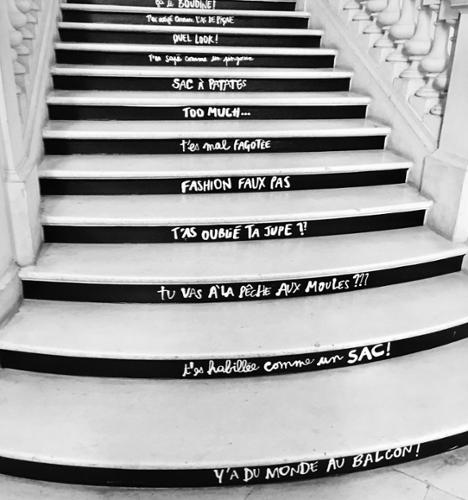 BOUDINE!
T'es sapé comme L'AS DE PIQUE
QUEL LOOK!
T'es sapé comme un pingouin
SAC À PATATES
TOO MUCH...
t'es mal FAGOTÉE
FASHION FAUX PAS
T'AS OUBLIÉ TA JUPE ?!
tU VAS A LA PÊCHE AUX MOULES ???
t'es habillée comme un SAC!
Y'A DU MONDE AU BALCON!